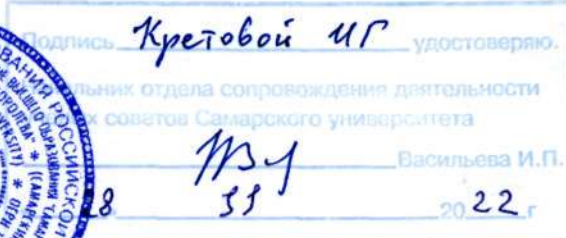 Подпись Кретовой ИГ удостоверяю.
Начальник отдела сопровождения деятельности
советов Самарского университета
Васильева И.П.
28 11 2022 г